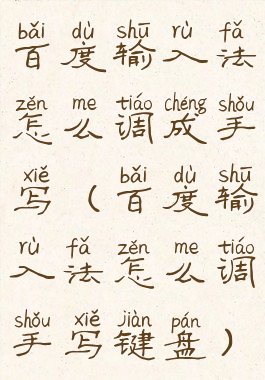 bǎi dù shū rù fǎ
百度输入法
zěn me tiáo chéng shǒu
怎么调成手
xiě bǎi dù shū
写（百度输
rù fǎ zěn me tiáo
入法怎么调
shǒu xiě jiàn pán
手写键盘）